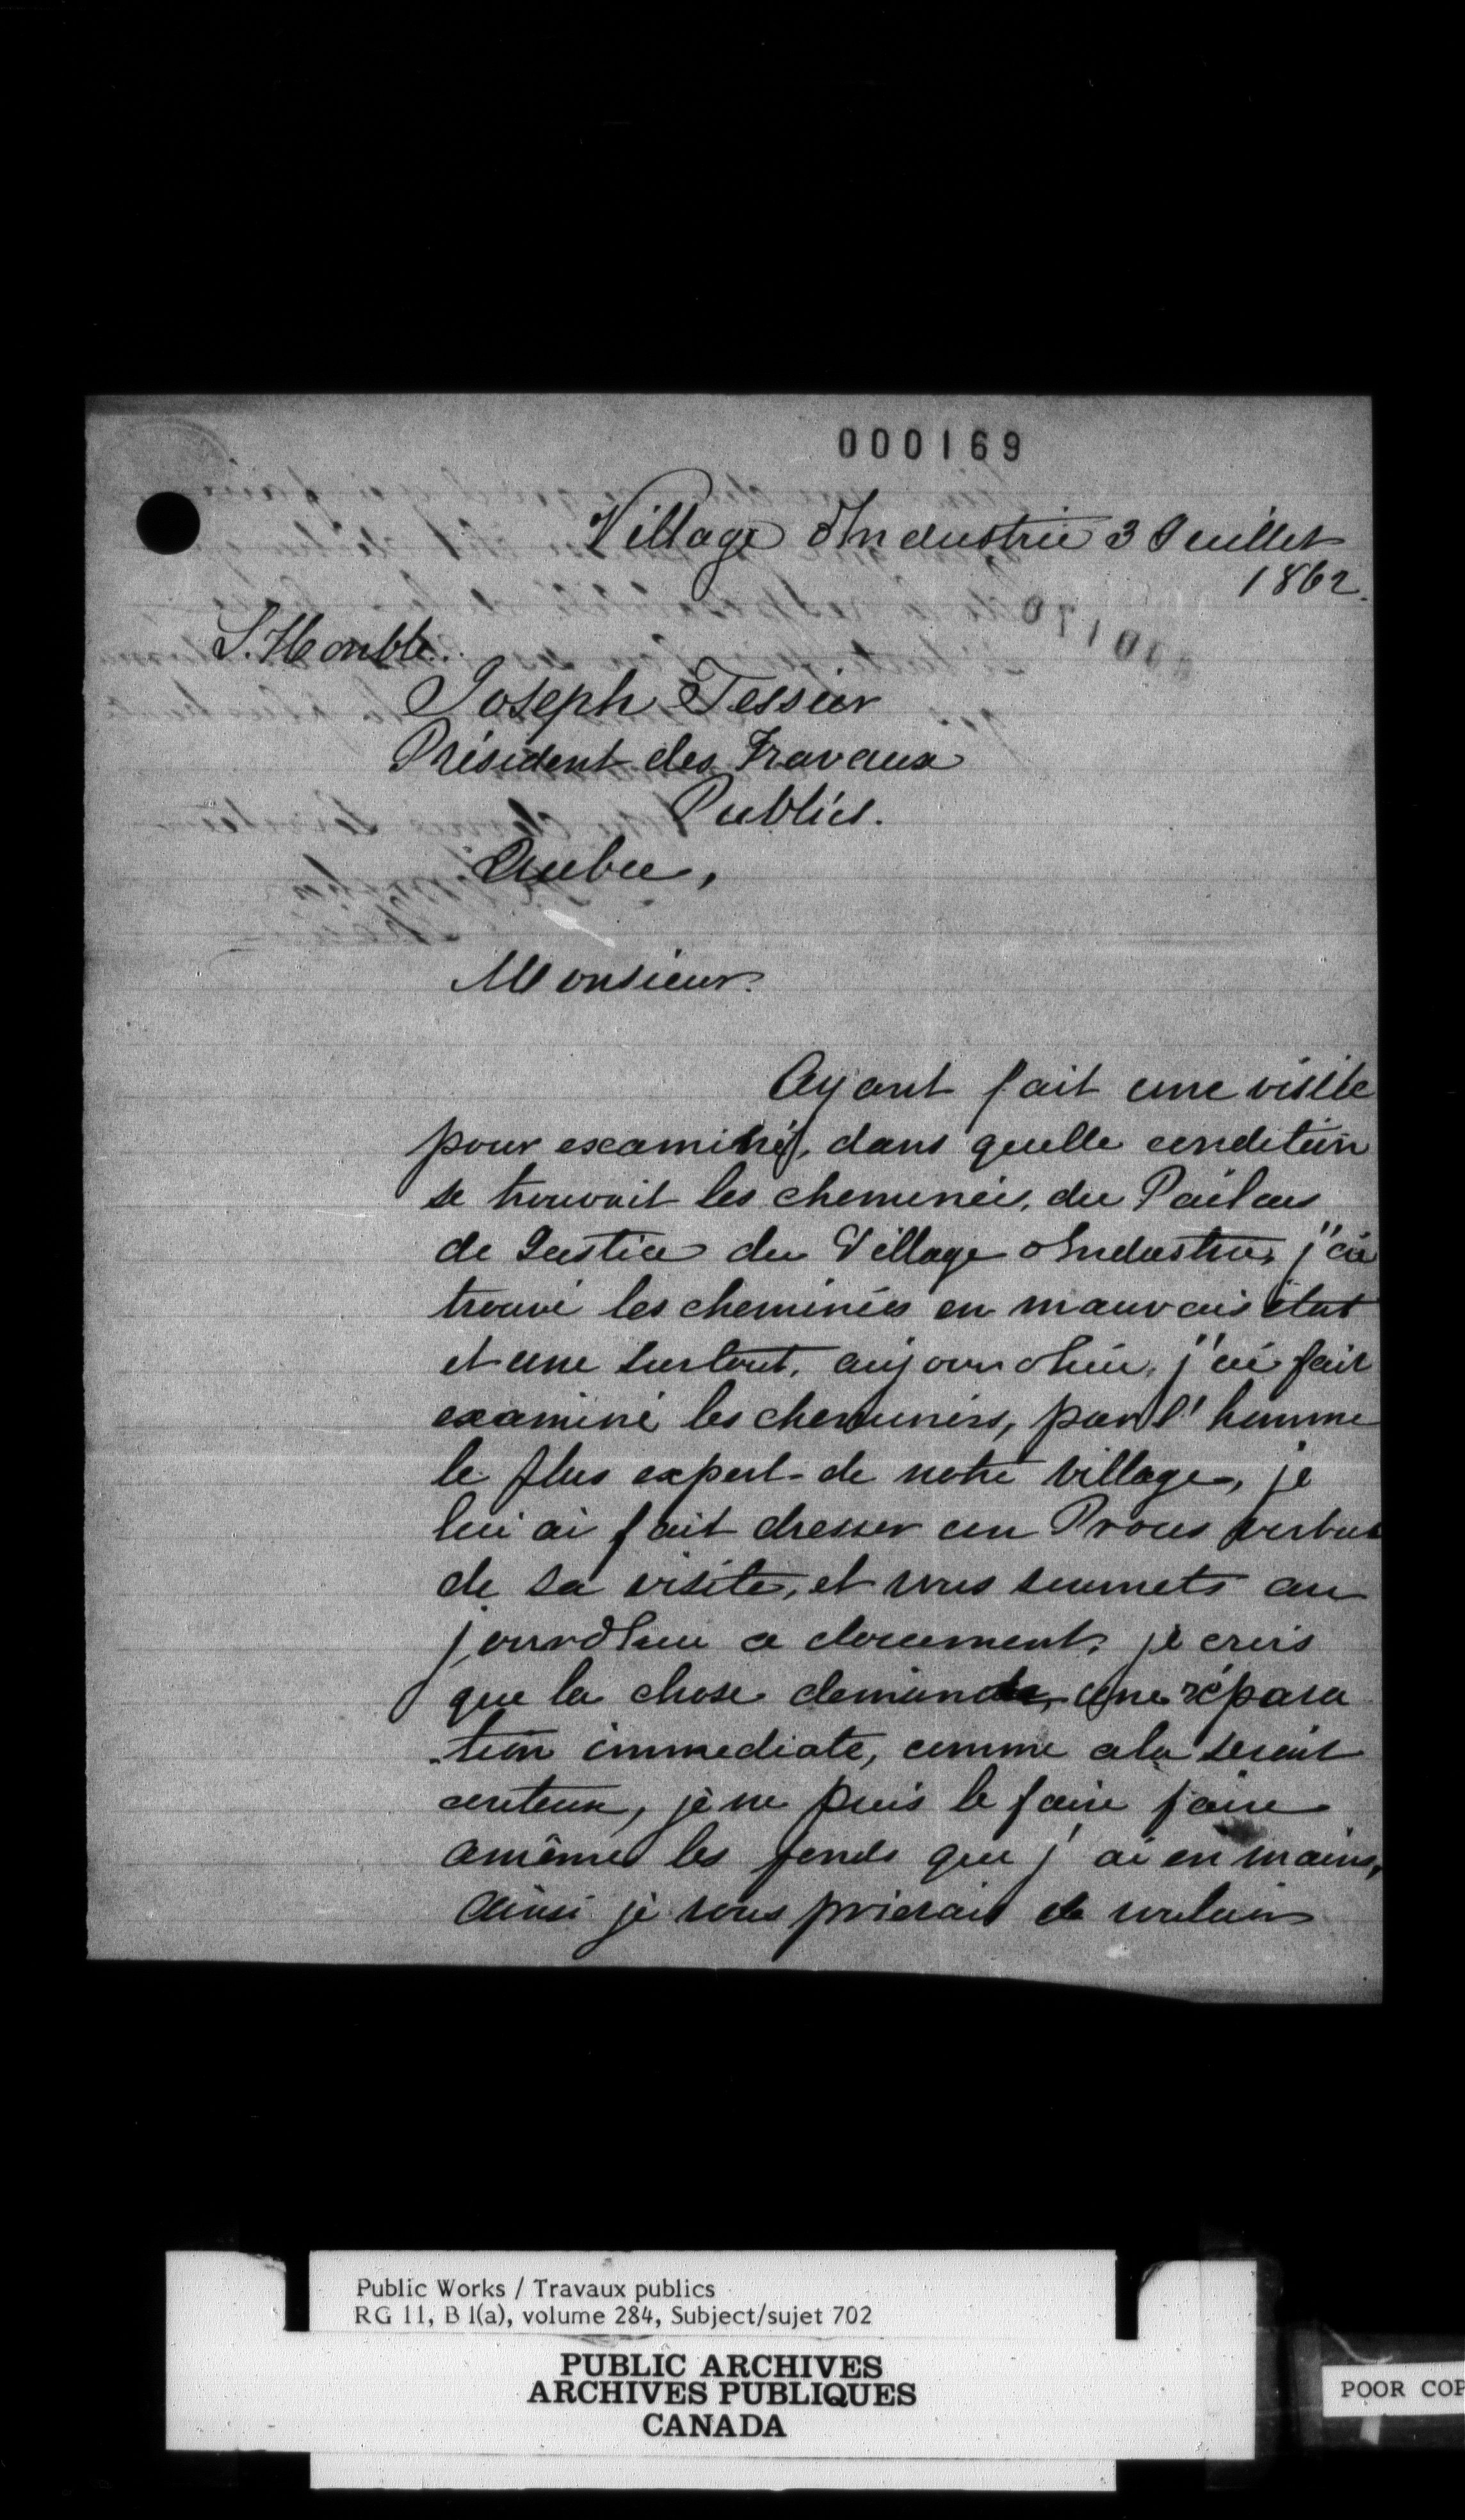 000169
Village d'Industrie 3 Juillet
1862.
L. Honble.
Joseph Tessier
Président des Travaux
Publics.
Québec,
Monsieur.
Ayant fait une visite
pour examiné, dans quelle condition
se trouvait les cheminées, du Pailais
de Justice du Village d'Industrie, j'ai
trouvé les cheminées en mauvais état
et une surtout, aujourdhui, j'ai fait
examiné les cheminées, par l'homme
le plus expert de notre village, je
lui ai fait dresser un Procès verbal
de sa visite, et vous soumets au
jourd'hui ce document, je crois
que la chose demande, une répara
-tion immediate, comme cela serait
couteux, je ne puis le faire faire
amême les fonds que j'ai en mains,
ainsi je vous prierais de vouloir
Public Works / Travaux publics
RG 11, B 1(a), volume 284, Subject/sujet 702
PUBLIC ARCHIVES
ARCHIVES PUBLIQUES
CANADA
POOR COP